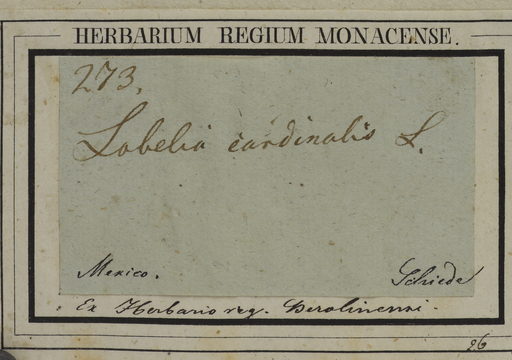 HERBARIUM REGIUM MONACENSE.
273.
Lobelia cardinalis L.
Mexico. Schiede
Ex Herbario reg. Berolinensi.
26